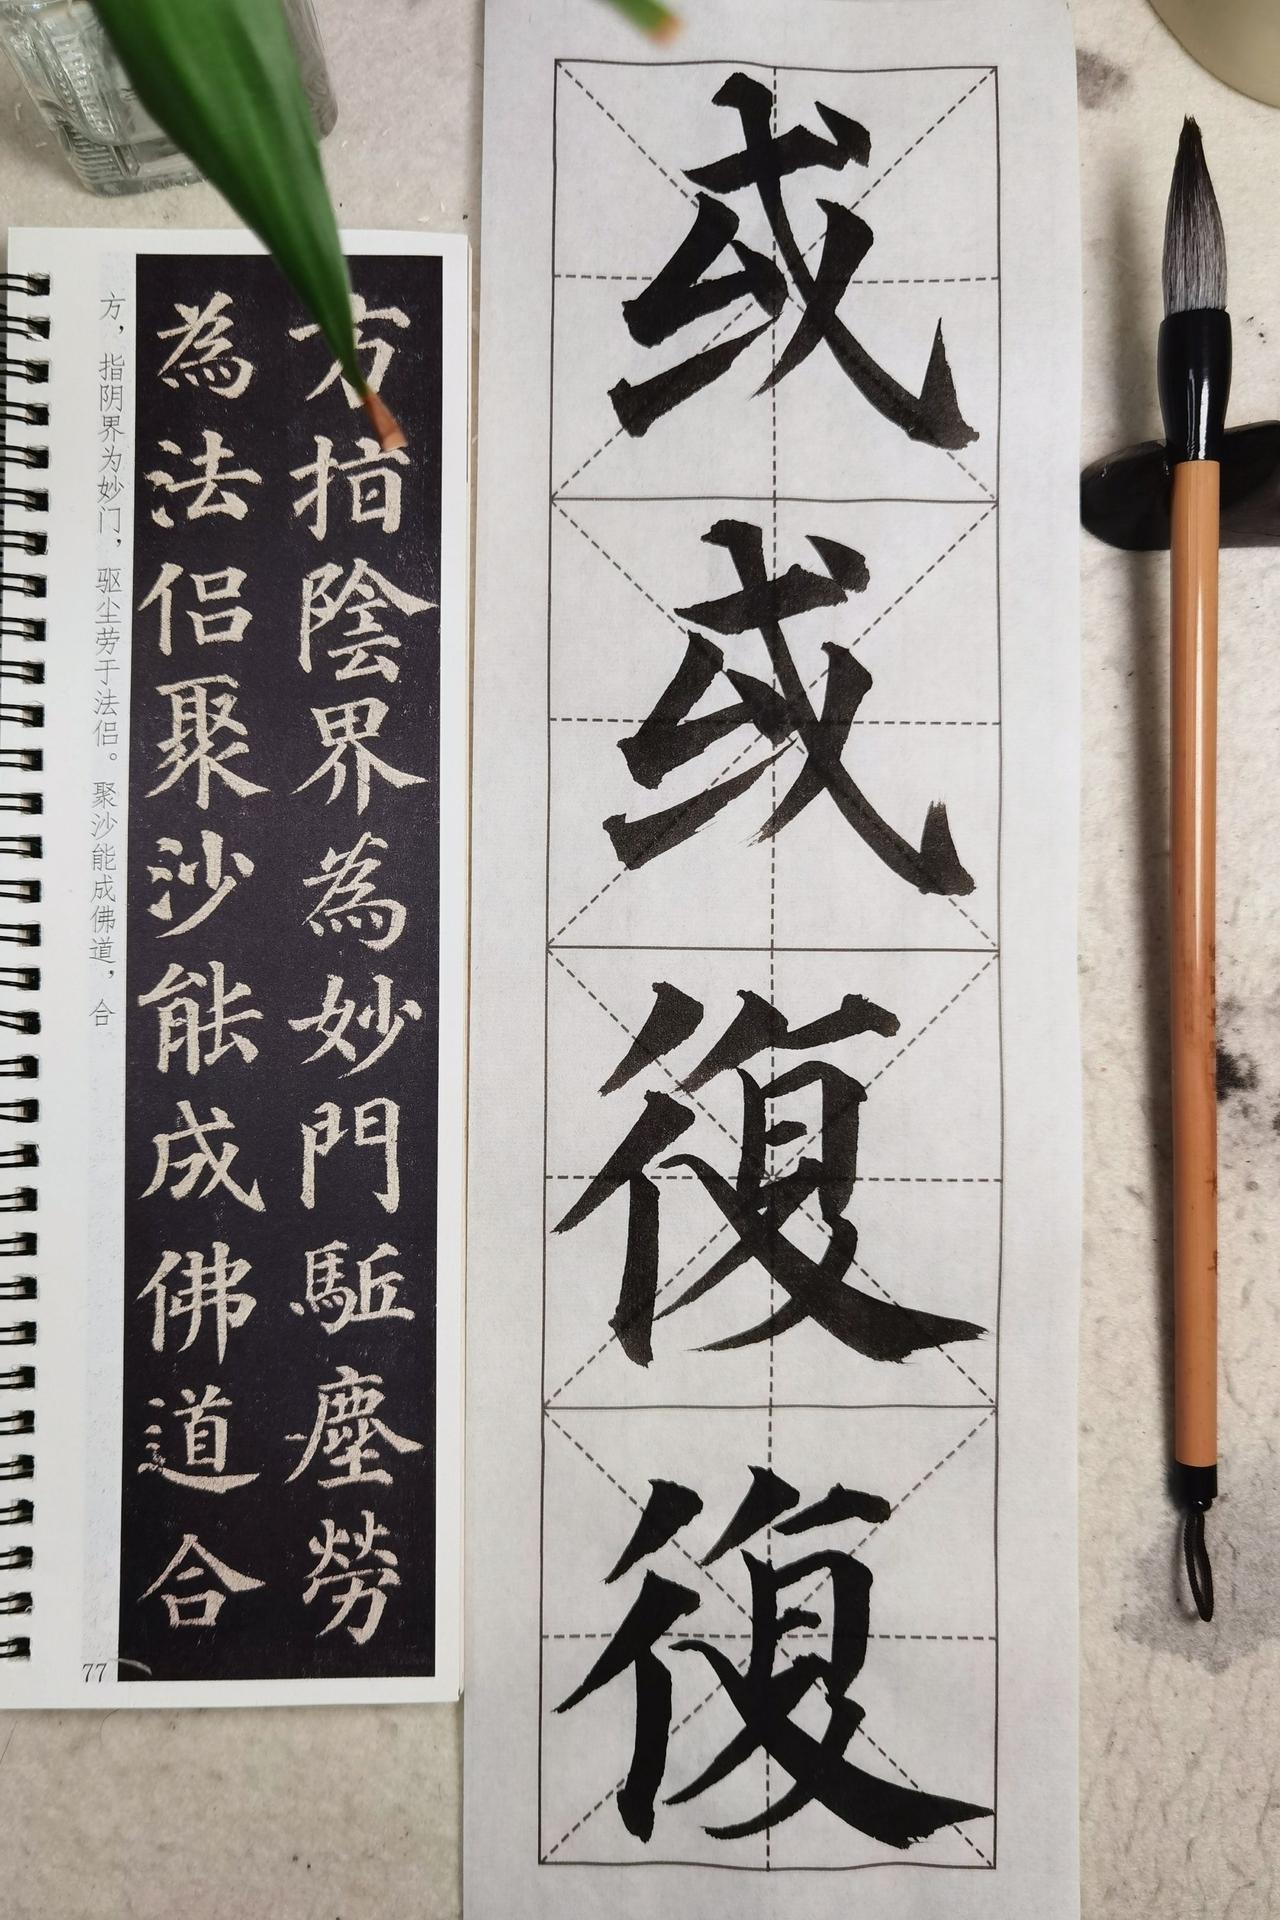 或或復復
方指陰界為妙門駈塵勞
為法侶聚沙能成佛道合
方，指阴界为妙门，驱尘劳于法侣。聚沙能成佛道，合
77